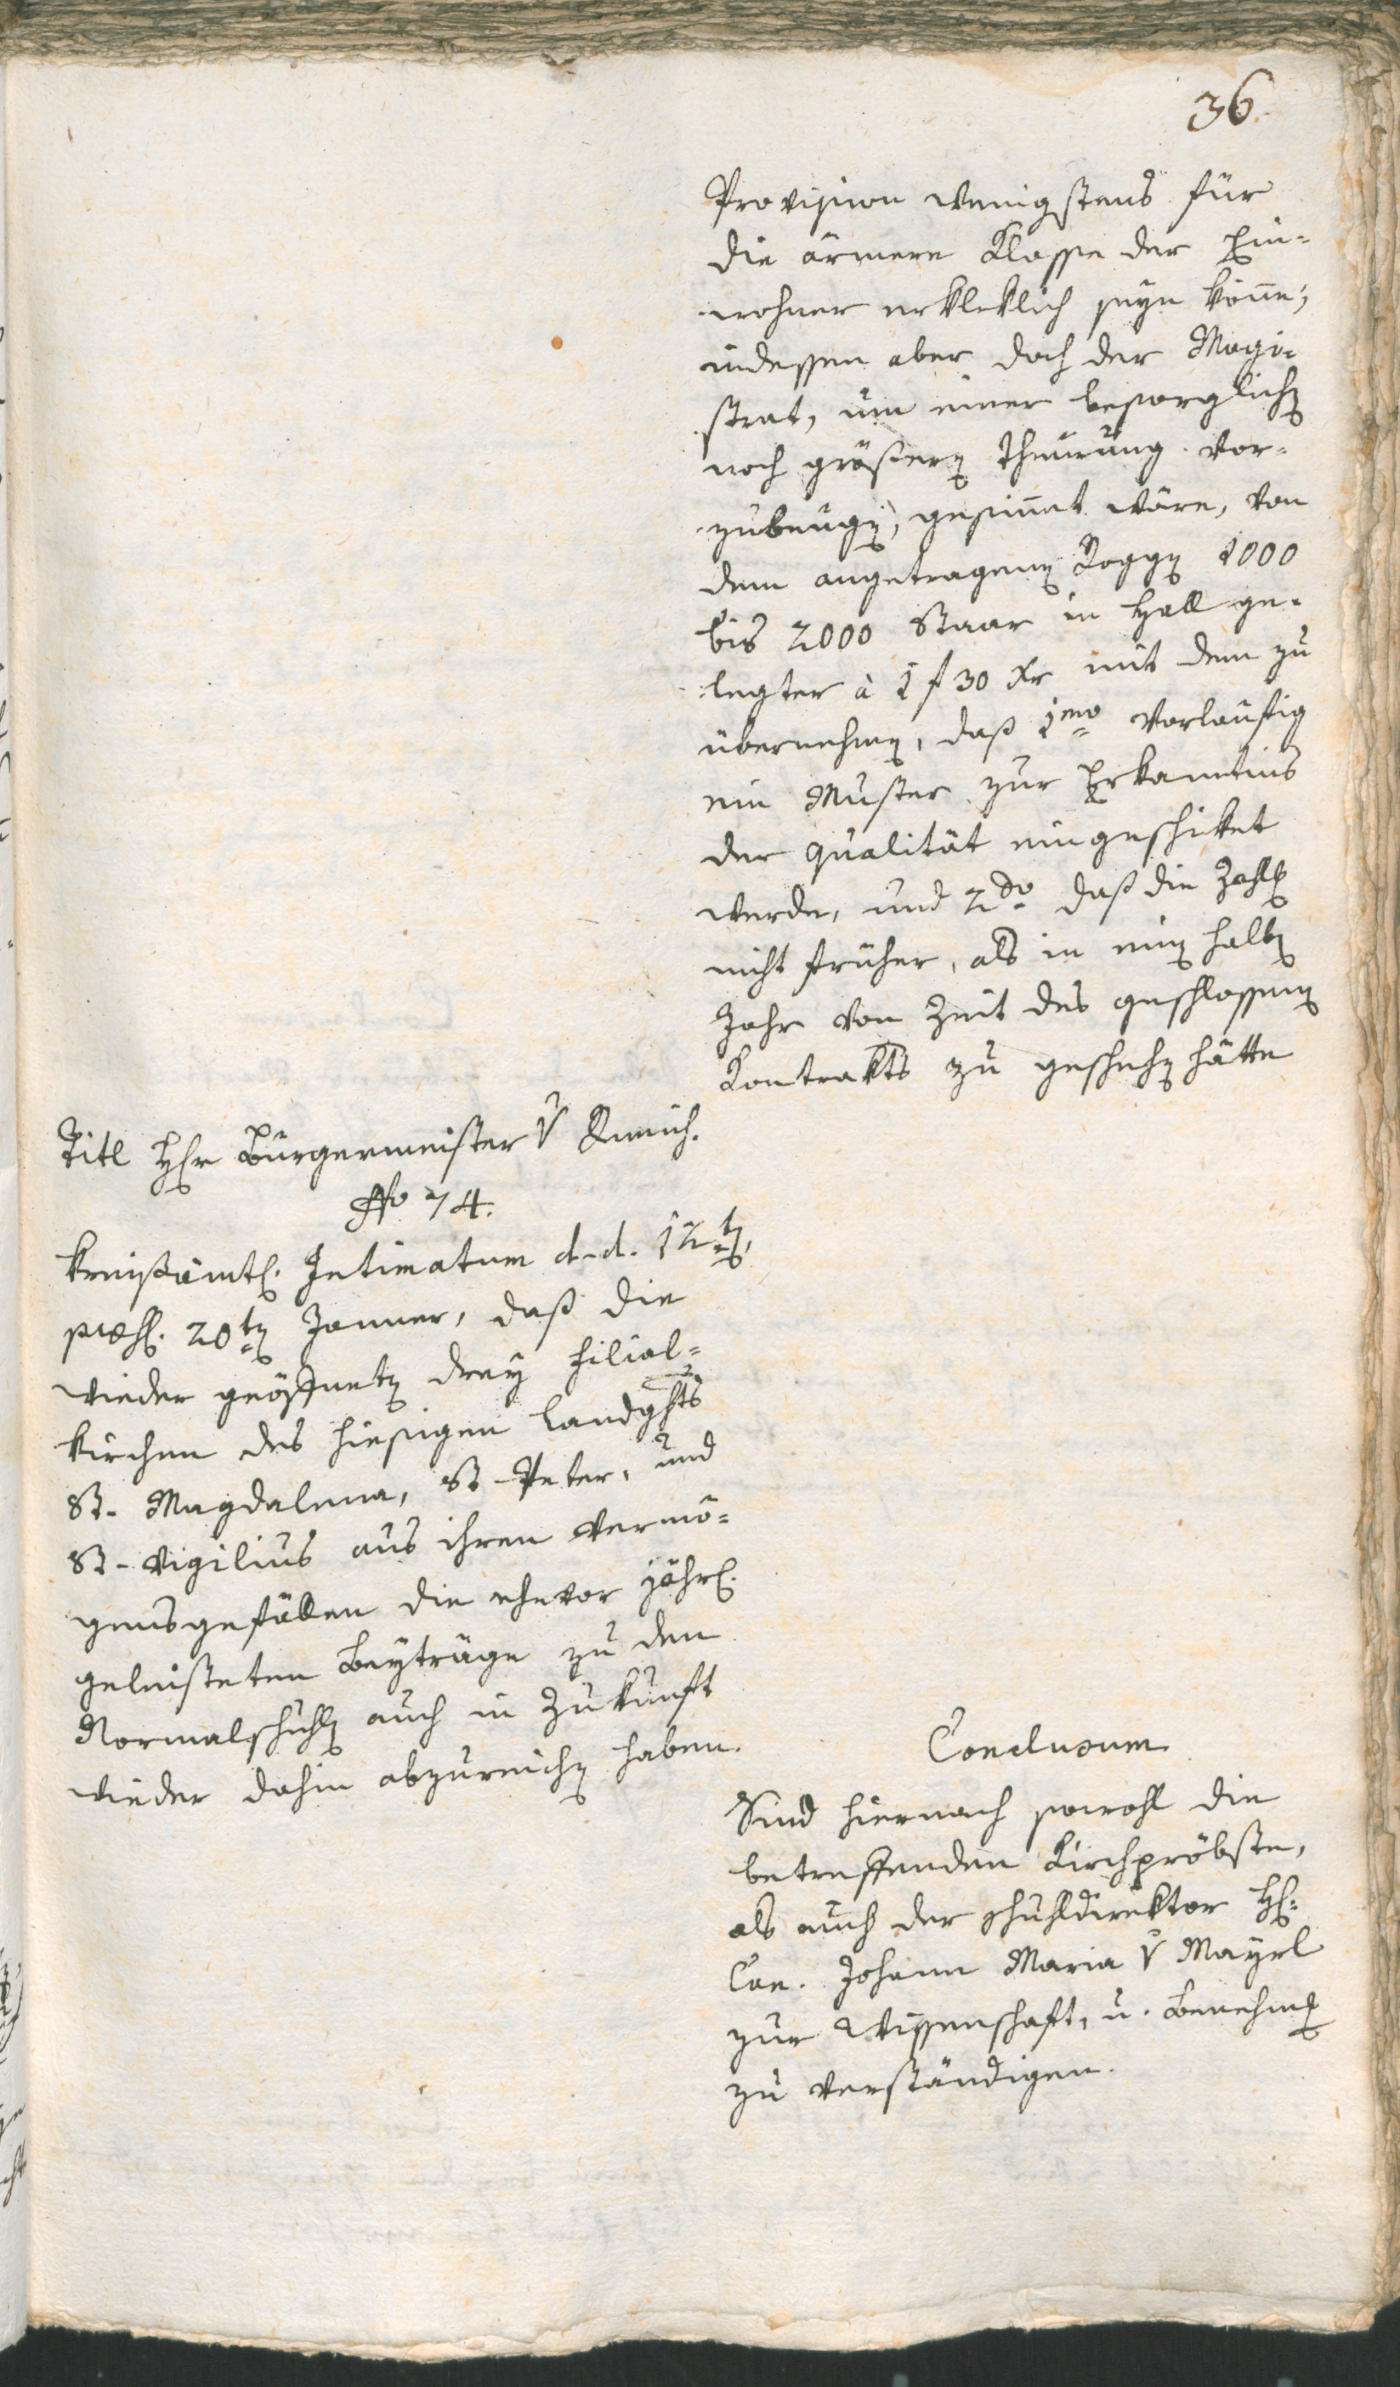 36.
Provision wenigstens für
die ärmere Klasse der Ein-
wohner erkleklich seyn könne;
indessen aber doch der Magi-
strat, um einer besorglichen
noch größern Theurung vor-
zubeugen, gesinnt wäre, von
dem angetragenen Roggen 1000
bis 2000 Staar in Hall ge-
legter à 1 f 30 xr mit dem zu
übernehmen, daß 1mo vorläufig
ein Muster zur Erkanntnis
der Qualität eingeschicket
werde, und 2do daß die Zahlung
nicht früher, als in einem halben
Jahr von Zeit des geschlossenen
Kontrakts zu geschehen hätte
Titl Hr Bürgermeister v
No 74.
Kreißämtl. Intimatum d. d. 12ten,
præs. 20ten Jenner, daß die
wieder geöffneten drey Filial-
kirchen des hiesigen Landghts
St. Magdalena, St. Peter, und
St. Vigilius aus ihren Vermö-
gensgefällen die ehevor jährl.
geleisteten Beyträge zu den
Normalschulen auch in Zukunft
wieder dahin abzureichen haben.
Conclusum
Sind hiernach sowohl die
betreffenden Kirchpröbste,
als auch der Schuldirektor H:
Can. Johann Maria v Mayrl
zur Wissenschaft, u. Benehmen
zu verständigen.